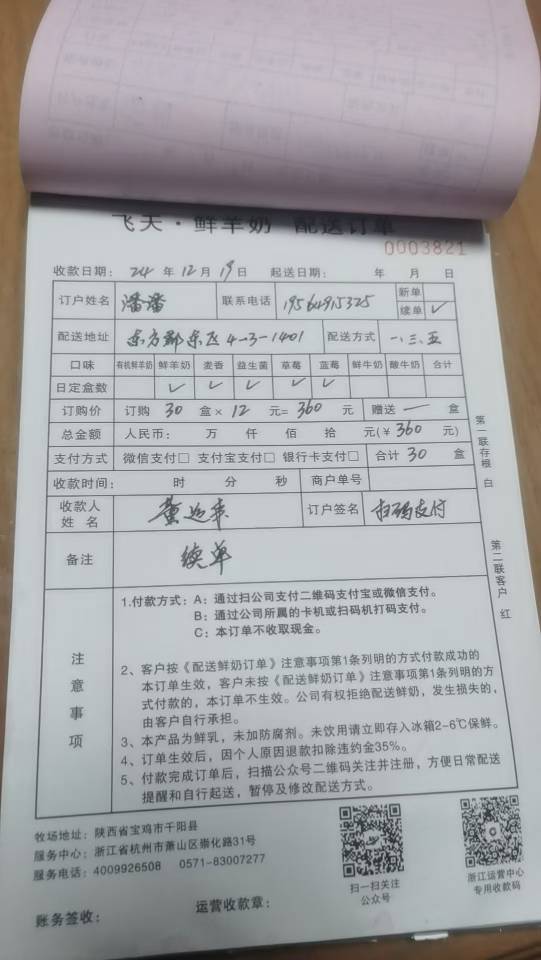 飞天·鲜羊奶 配送订单
0003821
收款日期: 24 年 12 月 19 日 起送日期: 年 月 日
订户姓名 潘潘 联系电话 19564915325 新单
续单 ✓
配送地址 东方郡东区4-3-1401 配送方式 一、三、五
口味 有机鲜羊奶 鲜羊奶 麦香 益生菌 草莓 蓝莓 鲜牛奶 酸牛奶 合计
日定盒数 ✓ ✓ ✓ ✓ ✓
订购价 订购 30 盒× 12 元= 360 元 赠送 一 盒
总金额 人民币: 万 仟 佰 拾 元(¥ 360 元)
支付方式 微信支付□ 支付宝支付□ 银行卡支付□ 合计 30 盒
收款时间: 时 分 秒 商户单号
收款人
姓名 订户签名 扫码支付
备注 续单
注意事项
1.付款方式: A: 通过扫公司支付二维码支付宝或微信支付。
B: 通过公司所属的卡机或扫码机打码支付。
C: 本订单不收取现金。
2、客户按《配送鲜奶订单》注意事项第1条列明的方式付款成功的
本订单生效,客户未按《配送鲜奶订单》注意事项第1条列明的方
式付款的,本订单不生效。公司有权拒绝配送鲜奶,发生损失的,
由客户自行承担。
3、本产品为鲜乳,未加防腐剂。未饮用请立即存入冰箱2-6℃保鲜。
4、订单生效后,因个人原因退款扣除违约金35%。
5、付款完成订单后,扫描公众号二维码关注并注册,方便日常配送
提醒和自行起送,暂停及修改配送方式。
第一联存根 白
第二联客户 红
牧场地址: 陕西省宝鸡市千阳县
服务中心: 浙江省杭州市萧山区崇化路31号
服务电话: 4009926508 0571-83007277
扫一扫关注
公众号
浙江运营中心
专用收款码
账务签收: 运营收款章: